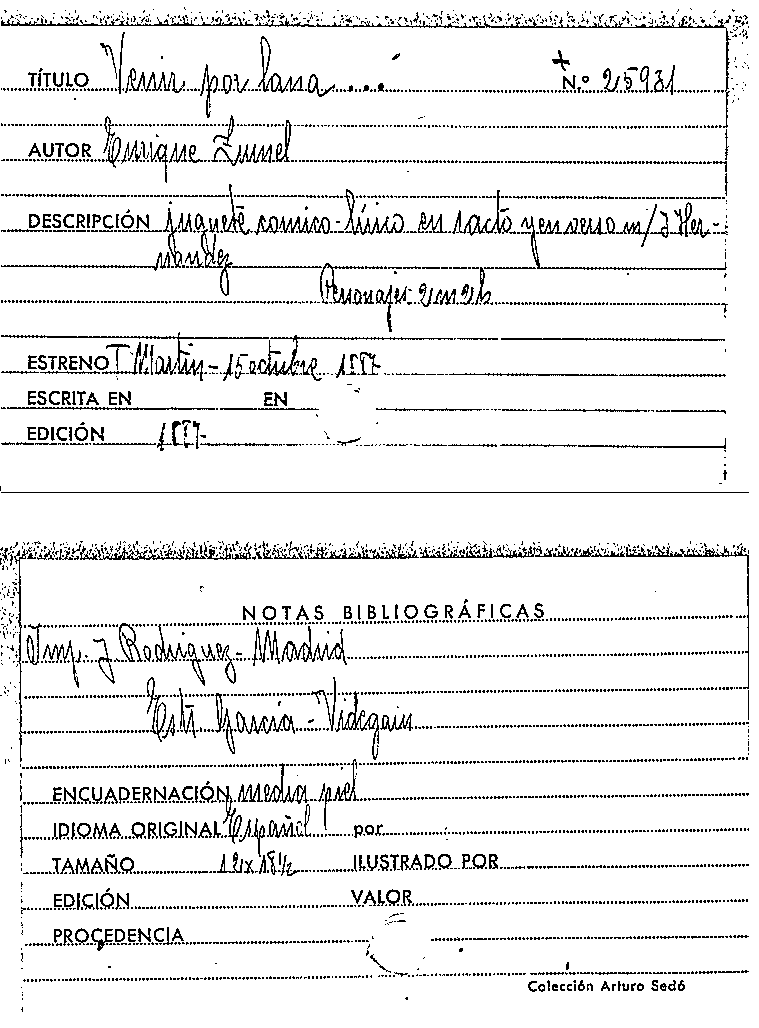 TÍTULO Venir por lana .... + N.º 25931
AUTOR Enrique Zumel
DESCRIPCIÓN juguete comico-lírico en 1 acto y en verso m/ J Her-
nandez
Personajes 2m 2h
ESTRENO T Martin - 15 octubre 1887
ESCRITA EN EN
EDICIÓN 1887-
NOTAS BIBLIOGRÁFICAS
Imp. J Rodriguez - Madrid
Garcia - Videgain
ENCUADERNACIÓN media piel
IDIOMA ORIGINAL Español por
TAMAÑO 12 x 18 ½ ILUSTRADO POR
EDICIÓN VALOR
PROCEDENCIA
Colección Arturo Sedó